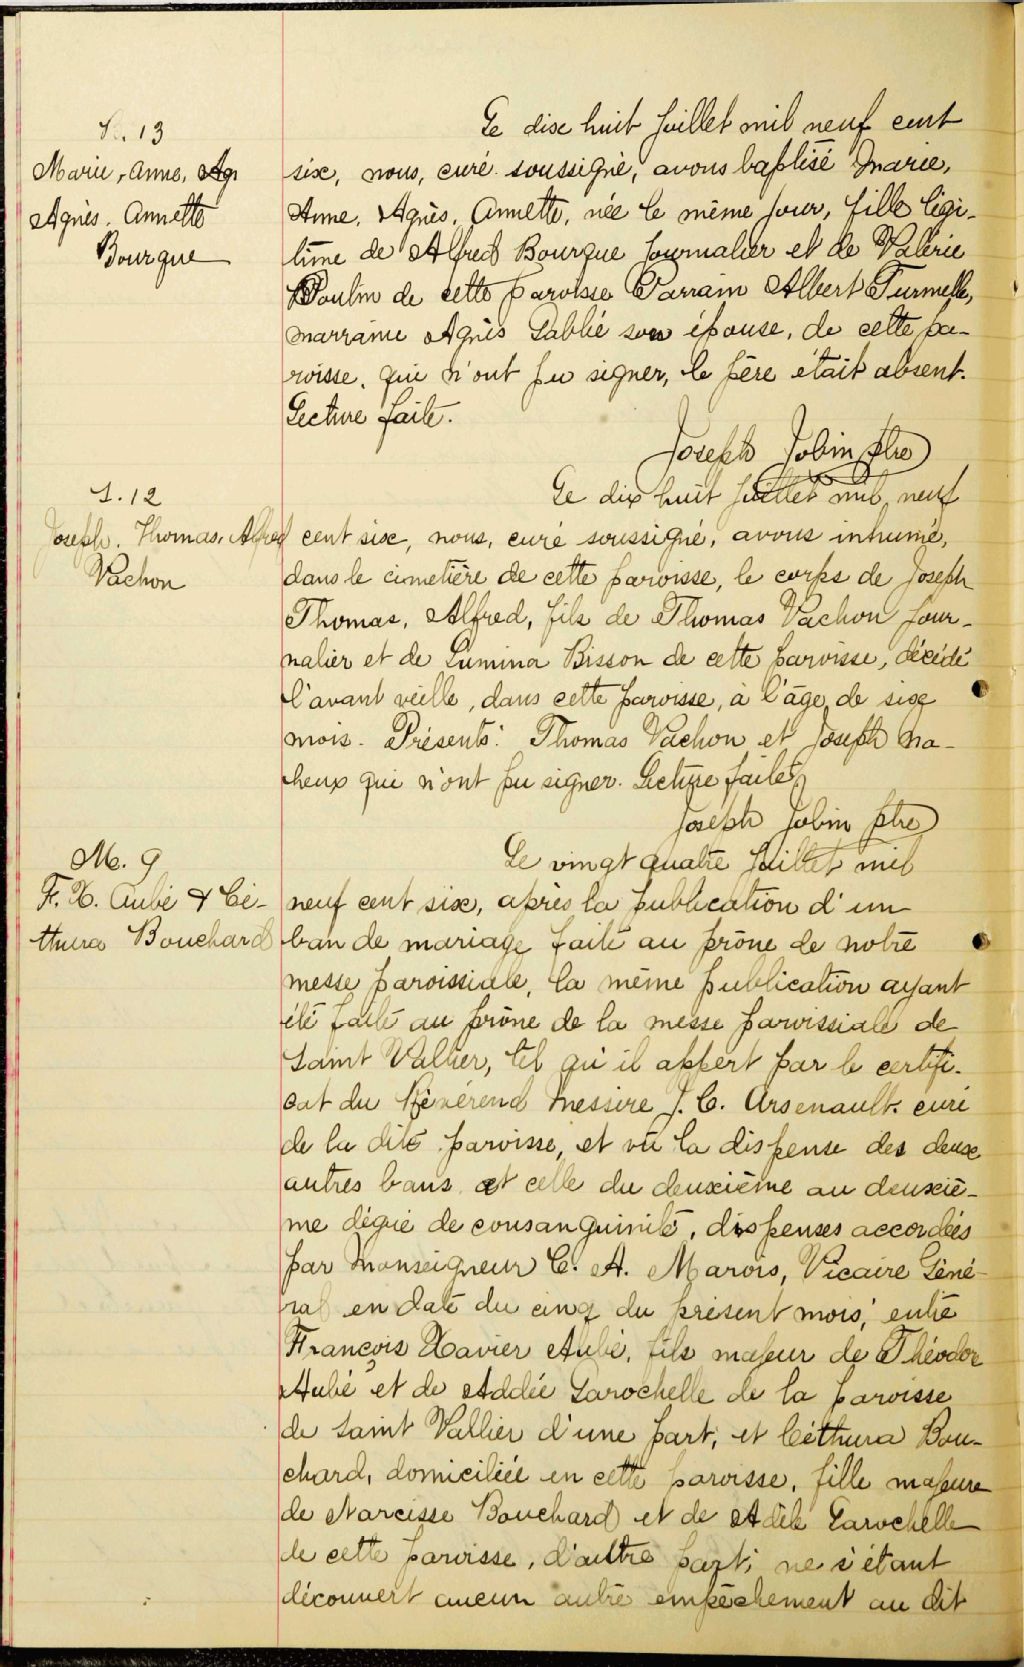 B. 13
Marie, Anne, Ag
Agnès, Annette
Bourque
Le dix huit juillet mil neuf cent
six, nous, curé soussigné, avons baptisé Marie,
Anne, Agnès, Annette, née le même jour, fille légi-
time de Alfred Bourque journalier et de Valérie
Poulin de cette paroisse Parrain Albert Turmelle,
marraine Agnès Labbé son épouse, de cette pa-
roisse, qui n'ont pu signer, le père était absent.
Lecture faite.
Joseph Jobin ptre
S. 12
Joseph, Thomas, Alfred
Vachon
Le dix huit juillet mil neuf
cent six, nous, curé soussigné, avons inhumé,
dans le cimetière de cette paroisse, le corps de Joseph
Thomas, Alfred, fils de Thomas Vachon jour-
nalier et de Lumina Bisson de cette paroisse, décédé
l'avant veille, dans cette paroisse, à l'âge de six
mois. Présents: Thomas Vachon et Joseph Ma-
heux qui n'ont pu signer. Lecture faite
Joseph Jobin ptre
M. 9
F. X. Aubé & Cé-
thura Bouchard
Le vingt quatre juillet mil
neuf cent six, après la publication d'un
ban de mariage faite au prône de notre
messe paroissiale, la même publication ayant
été faite au prône de la messe paroissiale de
Saint Vallier, tel qu'il appert par le certifi-
cat du Révérend Messire J. C. Arsenault, curé
de la dite paroisse, et vu la dispense des deux
autres bans et celle du deuxième au deuxiè-
me dégré de consanguinité, dispenses accordées
par Monseigneur C. A. Marois, Vicaire Géné-
ral en date du cinq du présent mois, entre
François Xavier Aubé, fils majeur de Théodore
Aubé et de Addée Larochelle de la paroisse
de Saint Vallier d'une part, et Céthura Bou-
chard, domiciliée en cette paroisse, fille majeure
de Narcisse Bouchard et de Adèle Larochelle
de cette paroisse, d'autre part; ne s'étant
découvert aucun autre empêchement au dit